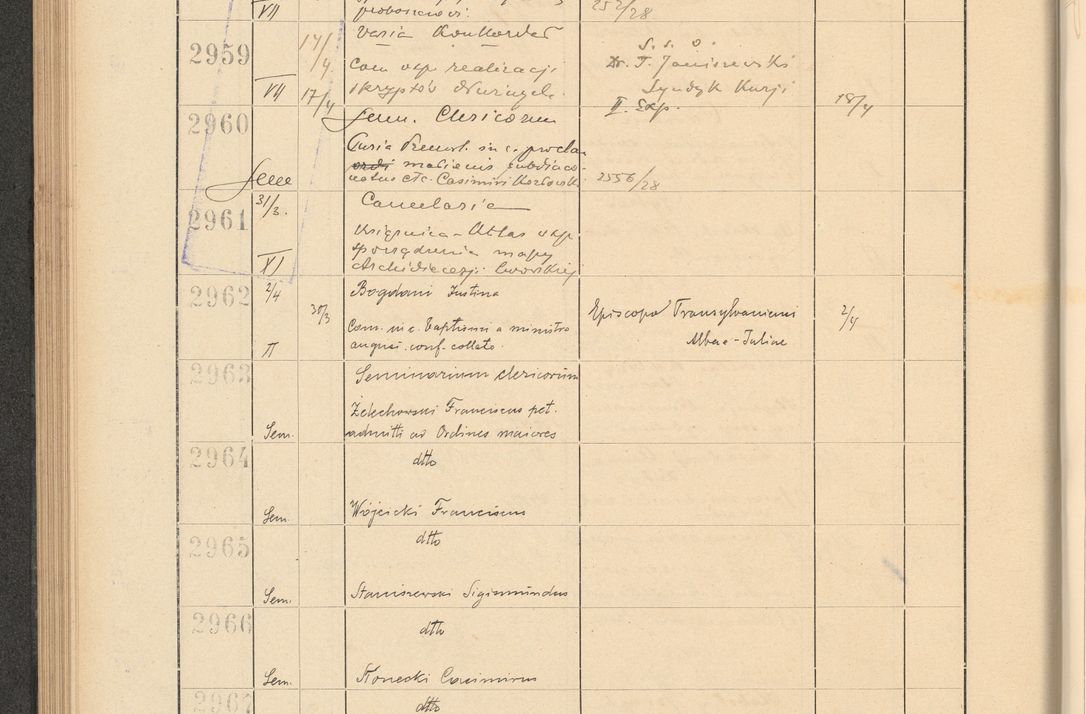 VII
252/28
2959
17/4
Varia
VII
17/4
com. exp. realizacji
skryptów
S. s. o.
Dr. T. Janiszewski
Syndyk Kurji
II. Exp.
18/4
2960
Sem. Clericorum
Sem
Curia
ordi
natus etc. Casimiri Kozłowski
2556/28
2961
31/3.
XI
Cancelaria
Książnica-Atlas
sporządzenia mapy
Archidiecezji Lwowskiej
2962
2/4
30/3
II
Bogdani Justina
Com. in c. baptismi a ministro
august. conf. collato.
Episcopo Transylvaniensi
Albae-Juliae
2/4
2963
Seminarium clericorum
Żelechowski Franciscus pet.
Sem.
admitti ad Ordines maiores
2964
dtto
Sem.
Wójcicki Franciscus
2965
dtto
Sem.
Staniszewski Sigismundus
2966
dtto
Sem.
Słonecki Casimirus
2967
dtto